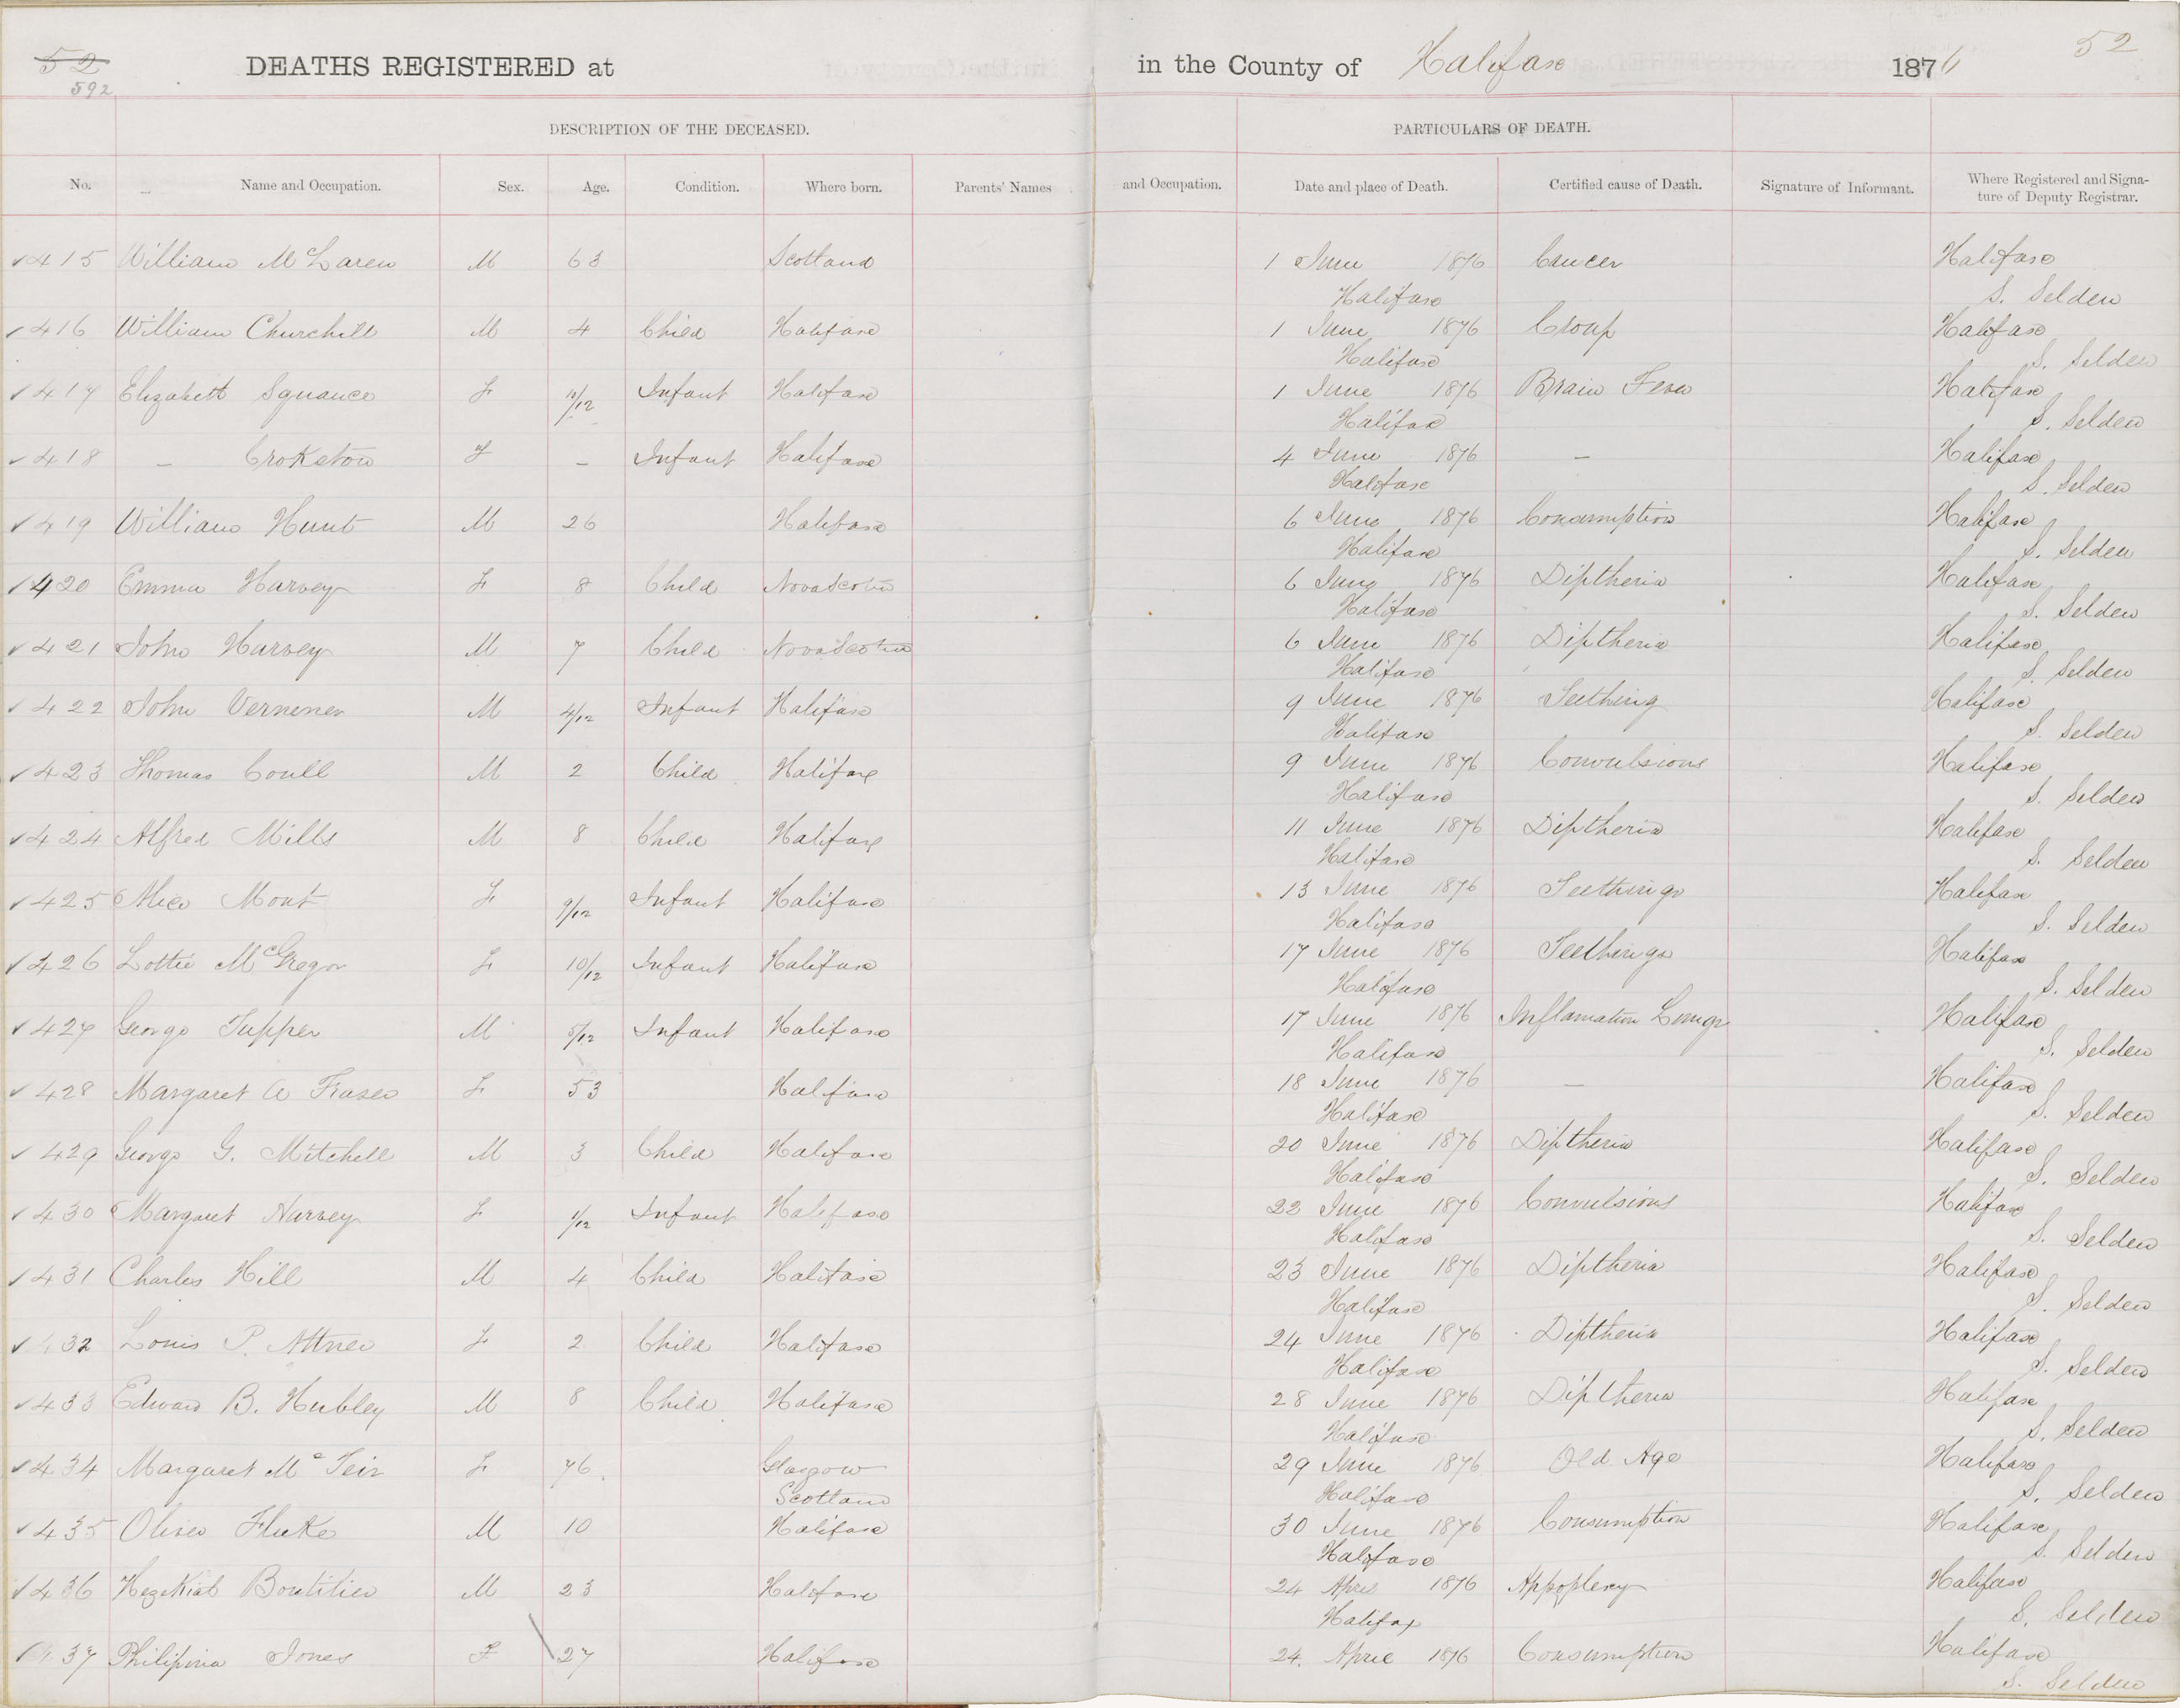 52
592
DEATHS REGISTERED at in the County of Halifax 1876 52
DESCRIPTION OF THE DECEASED. PARTICULARS OF DEATH.
No. Name and Occupation. Sex. Age. Condition. Where born. Parents' Names and Occupation. Date and place of Death. Certified cause of Death. Signature of Informant. Where Registered and Signa-
ture of Deputy Registrar.
415 William McLaren M 63 Scotland 1 June 1876 Cancer Halifax
Halifax S. Selden
416 William Churchill M 4 Child Halifax 1 June 1876 Croup Halifax
Halifax S. Selden
417 Elizabeth Squance F 11/12 Infant Halifax 1 June 1876 Brain Fever Halifax
Halifax S. Selden
418 – Croketon F – Infant Halifax 4 June 1876 – Halifax
Halifax S. Selden
419 William Hunt M 26 Halifax 6 June 1876 Consumption Halifax
Halifax S. Selden
420 Emma Harvey F 8 Child Nova Scotia 6 June 1876 Diptheria Halifax
Halifax S. Selden
421 John Harvey M 7 Child Nova Scotia 6 June 1876 Diptheria Halifax
Halifax S. Selden
422 John M 4/12 Infant Halifax 9 June 1876 Teething Halifax
Halifax S. Selden
423 Thomas Coull M 2 Child Halifax 9 June 1876 Convulsions Halifax
Halifax S. Selden
424 Alfred Mills M 8 Child Halifax 11 June 1876 Diptheria Halifax
Halifax S. Selden
425 Alice Mont F 9/12 Infant Halifax 13 June 1876 Teething Halifax
Halifax S. Selden
426 Lottie McGregor F 10/12 Infant Halifax 17 June 1876 Teething Halifax
Halifax S. Selden
427 George Tupper M 5/12 Infant Halifax 17 June 1876 Inflamation Lungs Halifax
Halifax S. Selden
428 Margaret A Fraser F 53 Halifax 18 June 1876 – Halifax
Halifax S. Selden
429 George G. Mitchell M 3 Child Halifax 20 June 1876 Diptheria Halifax
Halifax S. Selden
430 Margaret Harvey F 1/12 Infant Halifax 22 June 1876 Convulsions Halifax
Halifax S. Selden
431 Charles Hill M 4 Child Halifax 23 June 1876 Diptheria Halifax
Halifax S. Selden
432 Louis P. F 2 Child Halifax 24 June 1876 Diptheria Halifax
Halifax S. Selden
433 Edward B. Hubley M 8 Child Halifax 28 June 1876 Diptheria Halifax
Halifax S. Selden
434 Margaret F 76 Glasgow 29 June 1876 Old Age Halifax
Scotland Halifax S. Selden
435 Oliver Fluke M 10 Halifax 30 June 1876 Consumption Halifax
Halifax S. Selden
436 Hezekiah Boutilier M 23 Halifax 24 April 1876 Appoplexy Halifax
Halifax S. Selden
437 Philipina Jones F 27 Halifax 24. April 1876 Consumption Halifax
S. Selden